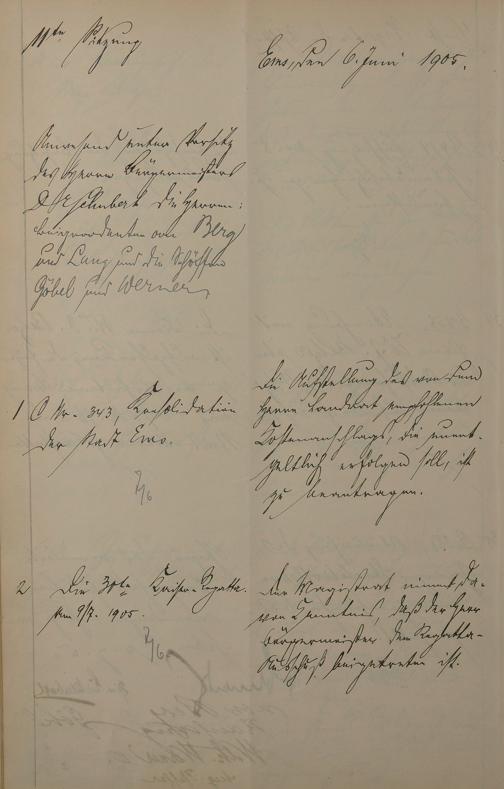 11te Sitzung
Ems, den 6. Juni 1905.
Anwesend unter Vorsitz
des Herrn Bürgermeisters
Dr Schubert die Herren:
Beigeordneten von Berg
und Lang und die Schöffen
Göbel und Werner
1 O Nr. 343, Konsolidation
der Stadt Ems.
7/6
Die Aufstellung des von dem
Herrn Landrat empfohlenen
Kostenanschlags, die unent-
geltlich erfolgen soll, ist
zu beantragen.
2 Die 30te Kaiser-Regatta.
am 9/7. 1905.
7/6
Der Magistrat nimmt da-
von Kenntnis, daß der Herr
Bürgermeister dem Regatta-
Ausschuß beigetreten ist.